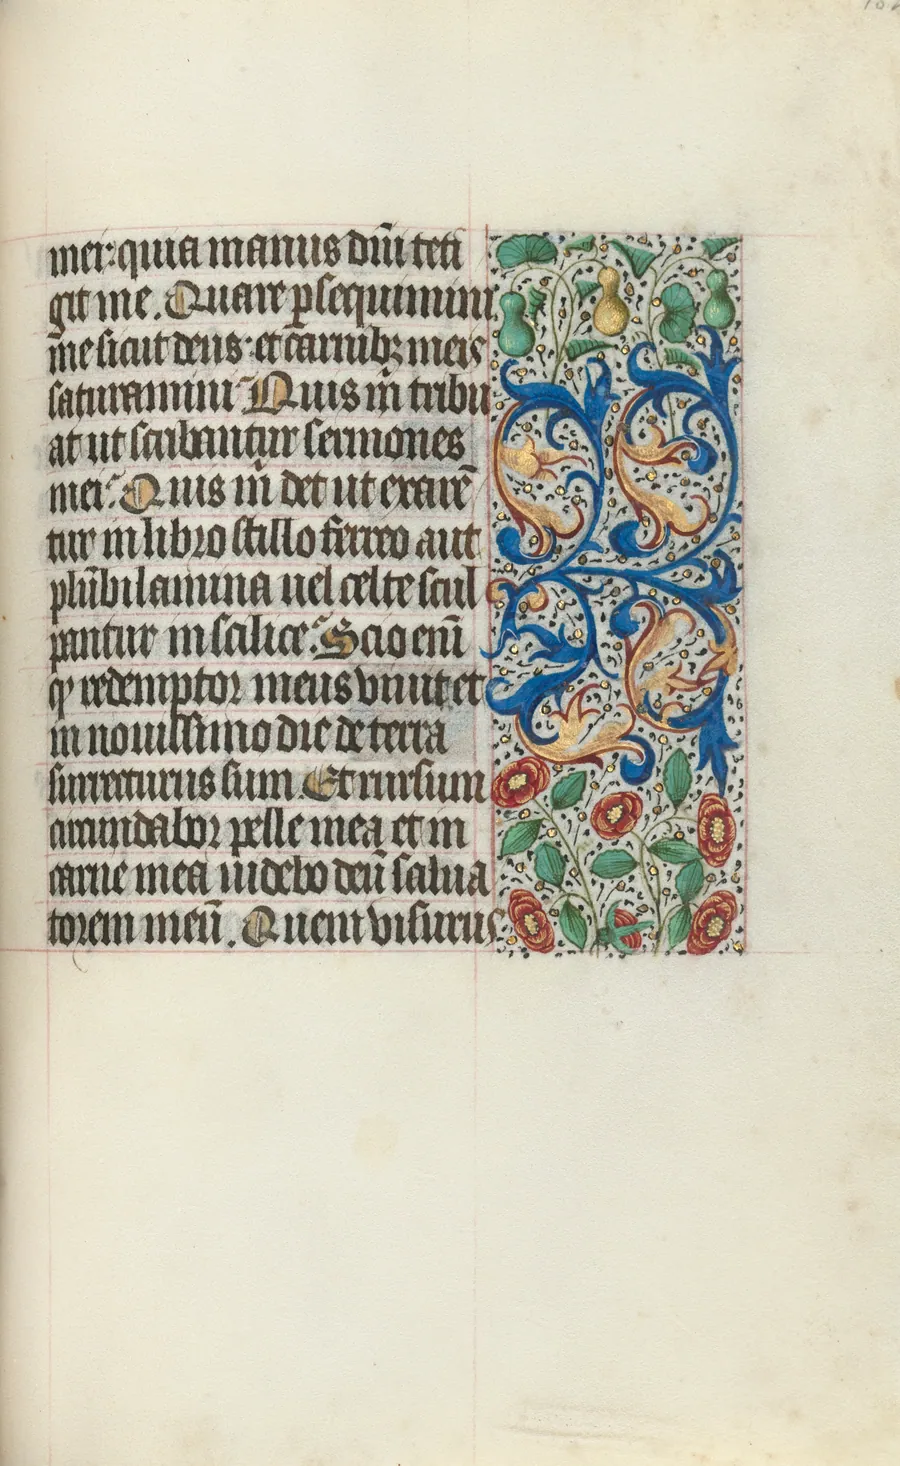 mei: quia manus dñi teti
git me. Quare ꝑsequimini
me sicut deus: et carnibꝫ meis
saturamini Quis m̃ tribu
at ut scribantur sermones
mei. Quis m̃ det ut exarẽ
tur in libro stillo ferreo aut
plũbi lamina uel celte scul
pantur in scilice. Scio enĩ
ꝙ redemptor meus viuit et
in nouissimo die de terra
surrecturus sum. Et rursum
circumdabor pelle mea et in
carne mea uidebo deũ salua
torem meũ. Quem visurus